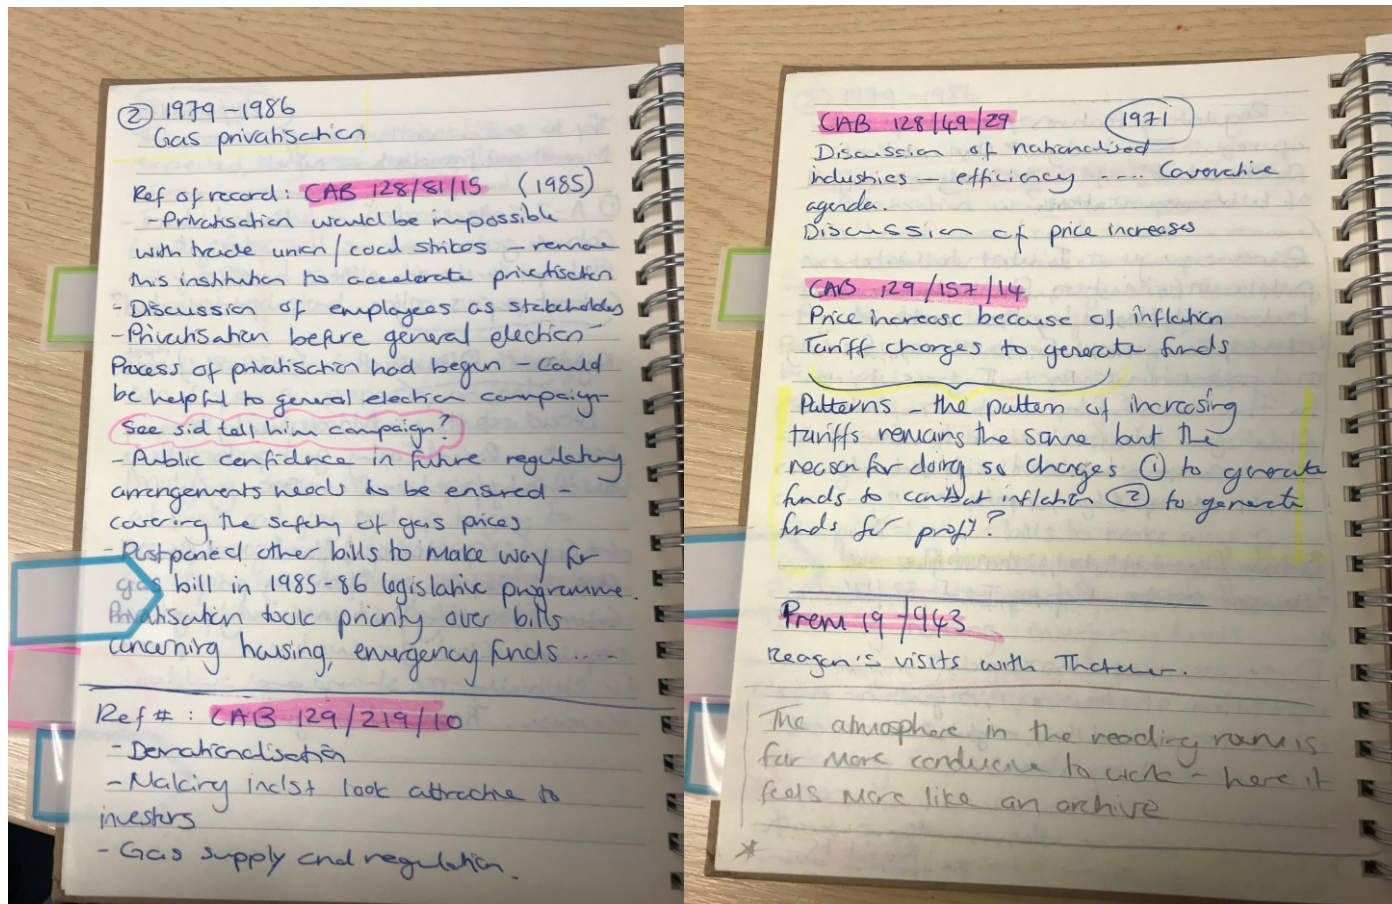 ② 1979-1986
Gas privatisation
Ref of record: CAB 128/81/15 (1985)
- Privatisation would be impossible
with trade union/coal strikes - remove
this institution to accelerate privatisation
- Discussion of employees as stakeholders
- Privatisation before general election -
Process of privatisation had begun - could
be helpful to general election campaign
See sid tell him campaign?
- Public confidence in future regulatory
arrangements needs to be ensured -
covering the safety of gas prices
- Postponed other bills to make way for
gas bill in 1985-86 legislative programme.
Privatisation took priority over bills
concerning housing, emergency funds .....
Ref # : CAB 129/219/10
- Denationalisation
- Making indst look attractive to
investors
- Gas supply and regulation.
CAB 128/49/29 1971
Discussion of nationalised
industries - efficiency ....
agenda.
Discussion of price increases
CAB 129/157/14
Price increase because of inflation
Tariff charges to generate funds
Patterns - the pattern of increasing
tariffs remains the same but the
reason for doing so changes ① to generate
funds to combat inflation ② to generate
funds for profit?
Prem 19/943
Reagan's visits with Thatcher.
The atmosphere in the reading room is
far more conducive to work - here it
feels more like an archive
*